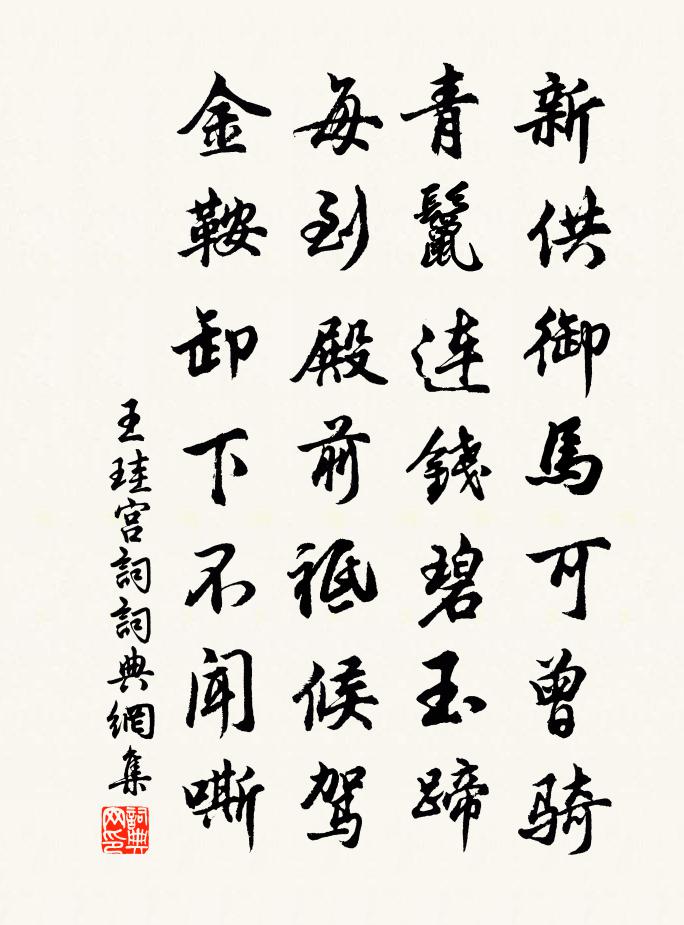 新供御馬可曾騎
青鬣連錢碧玉蹄
每到殿前祗候駕
金鞍卸下不聞嘶
王珪宫詞詞典網集
詞典网印